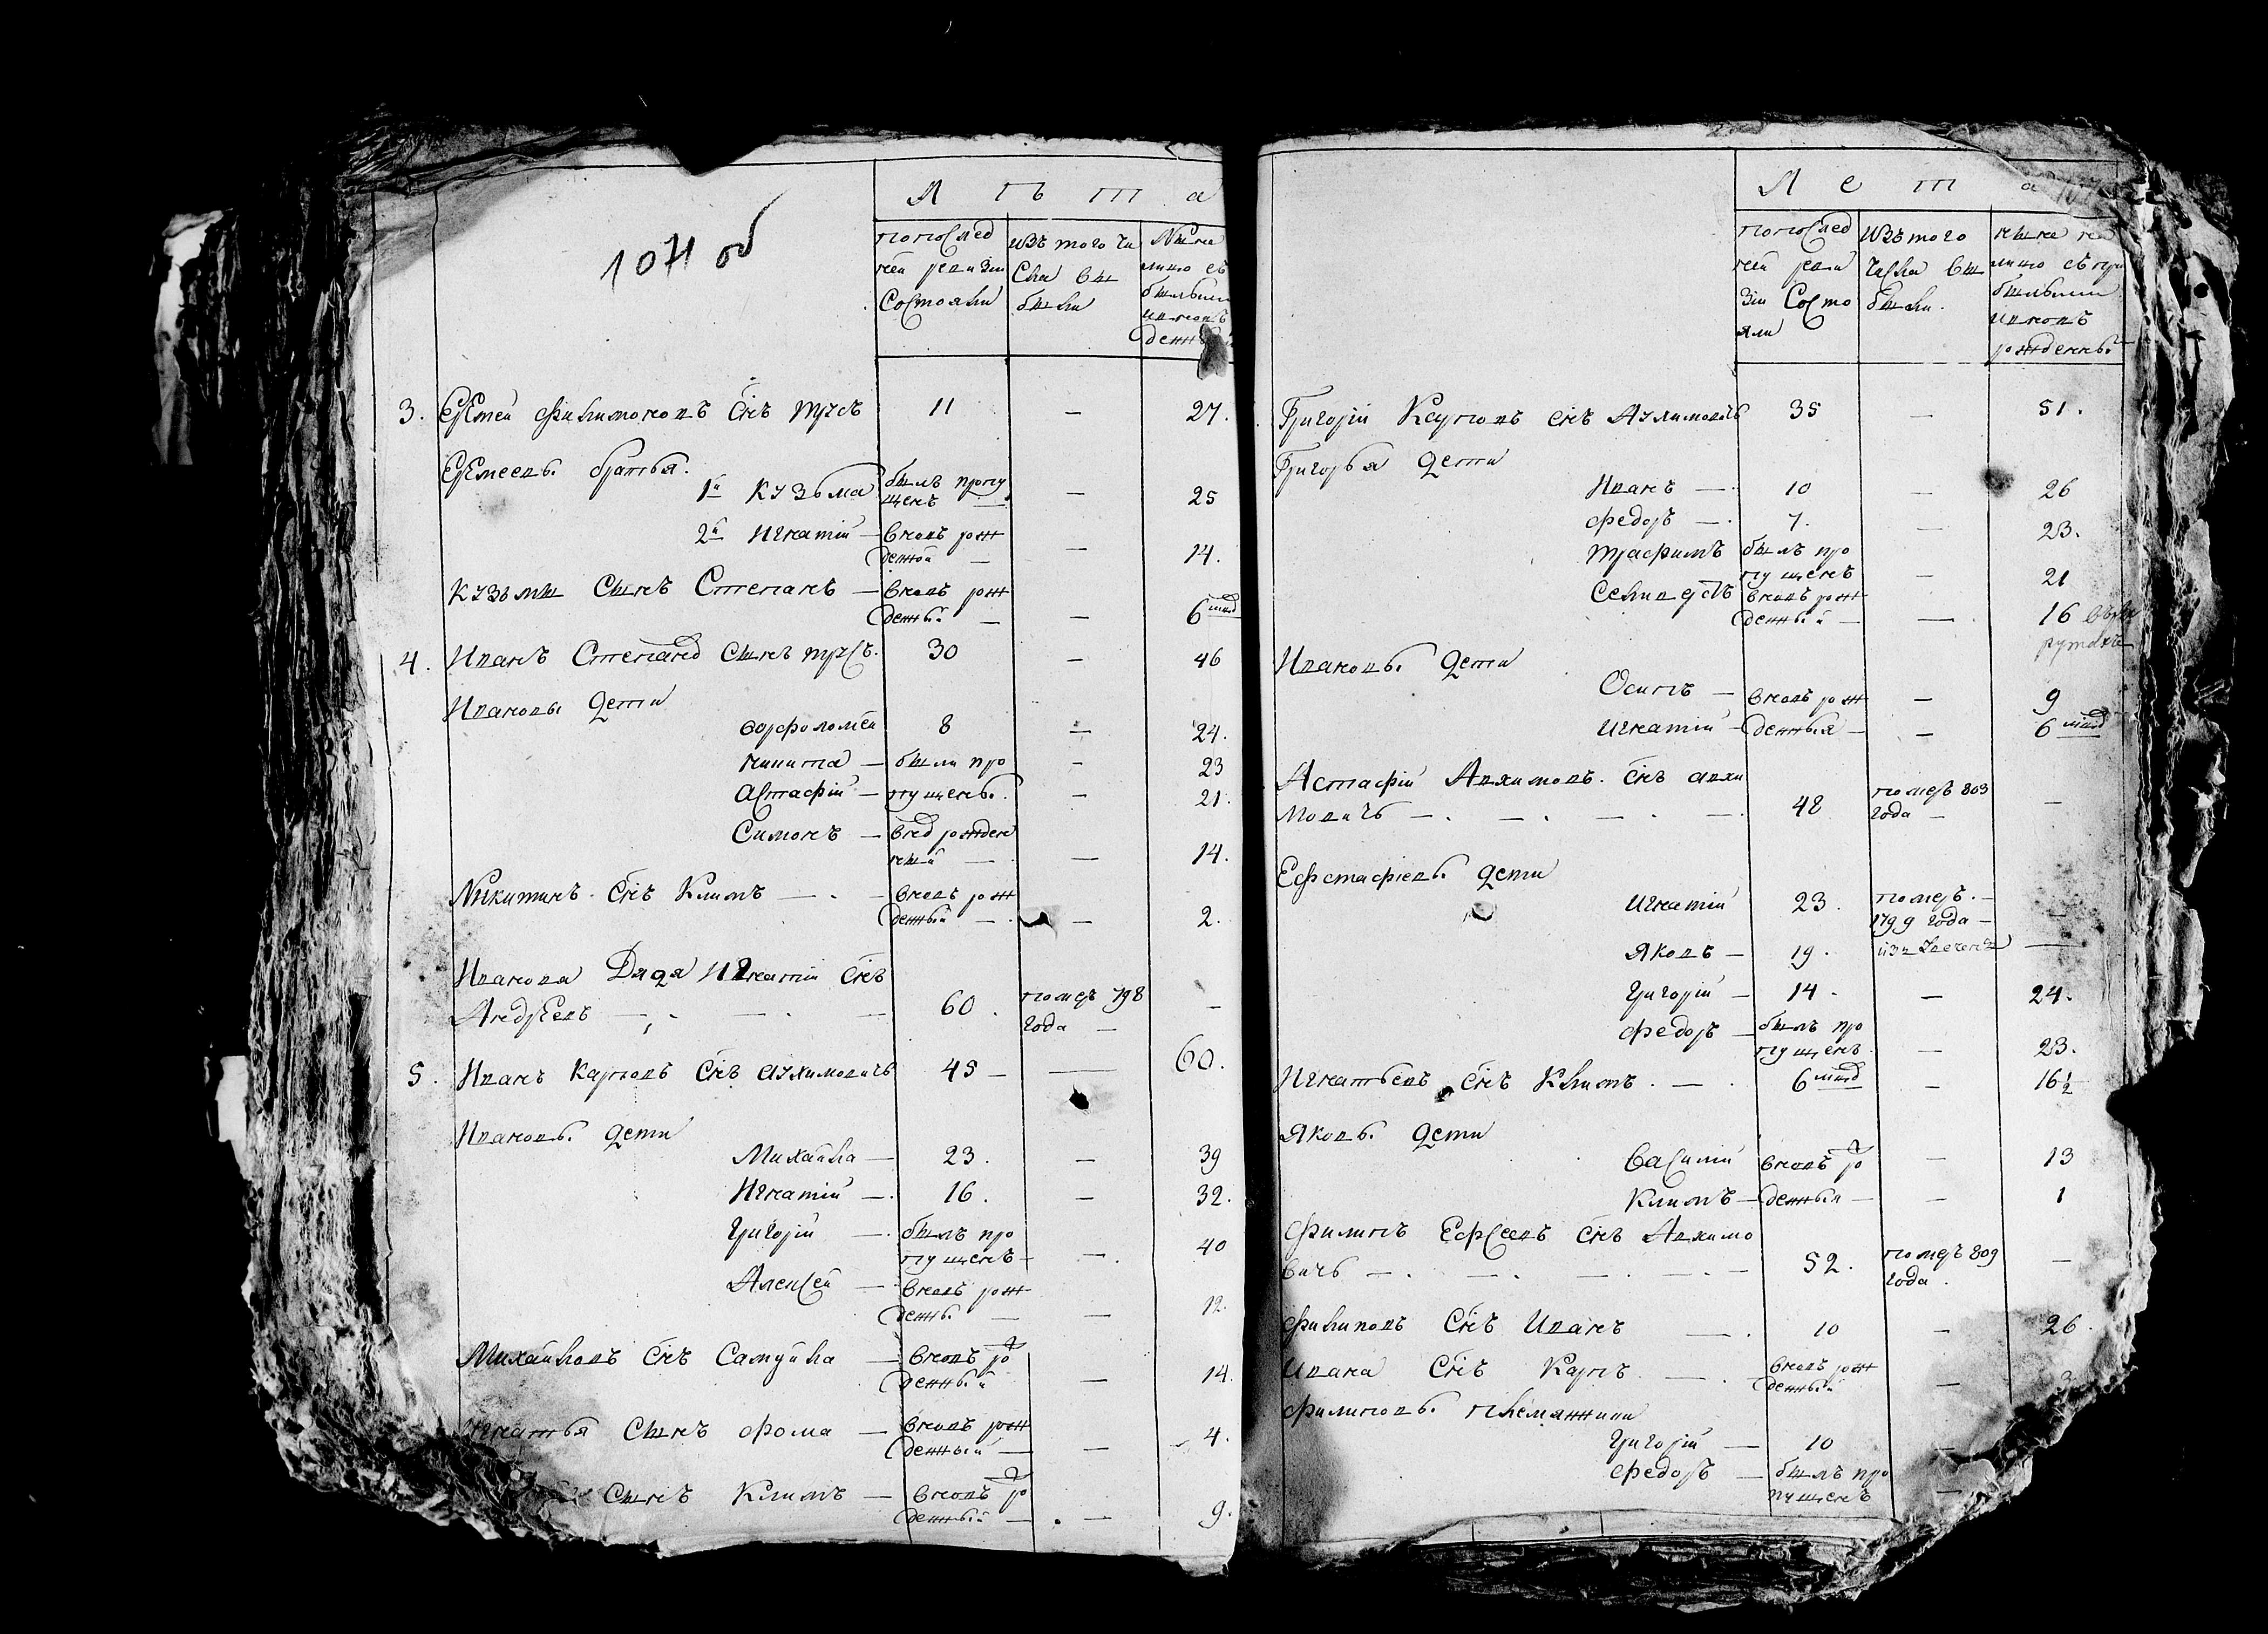 1071 об
Лѣта
попослед ней ревизіи Состояли
изъ того чи Сла вы были
Ныне
3. Еремей Филимоновъ Снъ Трусъ 11 — 27.
Еремеевы братья.
1й Кузьма былъ пропу щенъ — 25
2й Игнатій — вновь рож денной — 14.
Кузьмы Сынъ Степанъ — вновь рож денный — 6
4. Иванъ Сынъ Трусъ. 30 — 46
Ивановы дети
Ворфоломей 8 — 24.
никита — были про — 23
Астафій — пущены. — 21.
Симонъ — рожден ный — 14.
Никитинъ Снъ Климъ — вновь рож денный — 2.
Иванова Дядя Игнатій Снъ
Андреевъ — 60. померъ 798 года —
5. Иванъ Карповъ Снъ 45 — 60.
Ивановы дети
Михайла — 23. — 39
Игнатій — 16. — 32.
Григорій — былъ про пущенъ — 40
Алексей — вновь рож денны — 12.
Михайловъ Снъ Самуйла — вновь ро денный — 14.
Игнатья Сынъ Фома — вновь рож денный — 4.
Сынъ Климъ — вновь ро денный — 9.
Лета
попослед ней реви зіи Состо яли
изъ того числа вы были.
ныне на лицо съ при былыми и вновь рожденны
Григорій Карповъ снъ 35 — 51.
Григорья дети
Иванъ — 10 — 26
Федоръ — 7. — 23.
Трафимъ былъ про пущенъ — 21
вновь рож денный — 16
Ивановы дети
Осипъ — вновь рож — 9
Игнатій — денныя — — 6
Астафій Авхимовъ. Снъ Авхи
мовичъ — 48 померъ 803 года — —
Ефстафіевы дети
Игнатій 23. померъ. 1799 года — —
Яковъ — 19. —
Григорій — 14 — 24.
Федоръ — былъ про пущенъ — 23.
Игнатьевъ Снъ Климъ. — 6 — 16½
Яковы дети
Василій вновь ро — 13
Климъ — денныя — — 1
Филипъ Ефсеевъ Снъ Авхимо
вичъ — 52. померъ 809 года. —
Филиповъ Снъ Иванъ — 10 — 26.
Ивана Снъ Карпъ. — вновь рож денный — 3
Филиповы племянники
Григорій — 10 —
Федоръ — былъ про пущенъ —